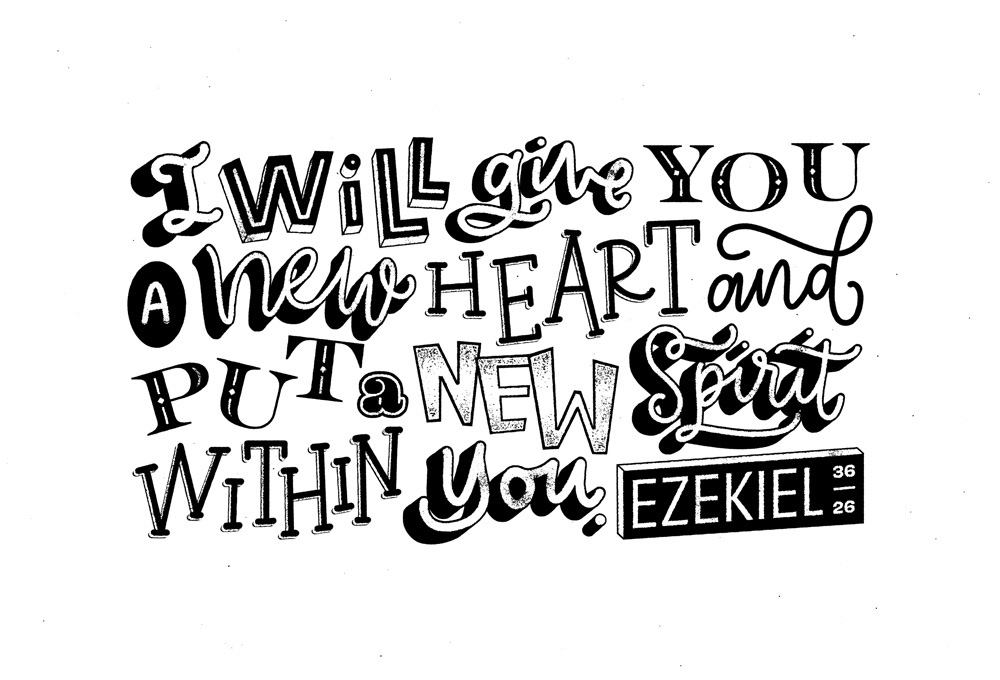 I WiLL give YOU
A new HEART and
PUT a NEW Spirit
WiTHiN you.
EZEKIEL 36
26